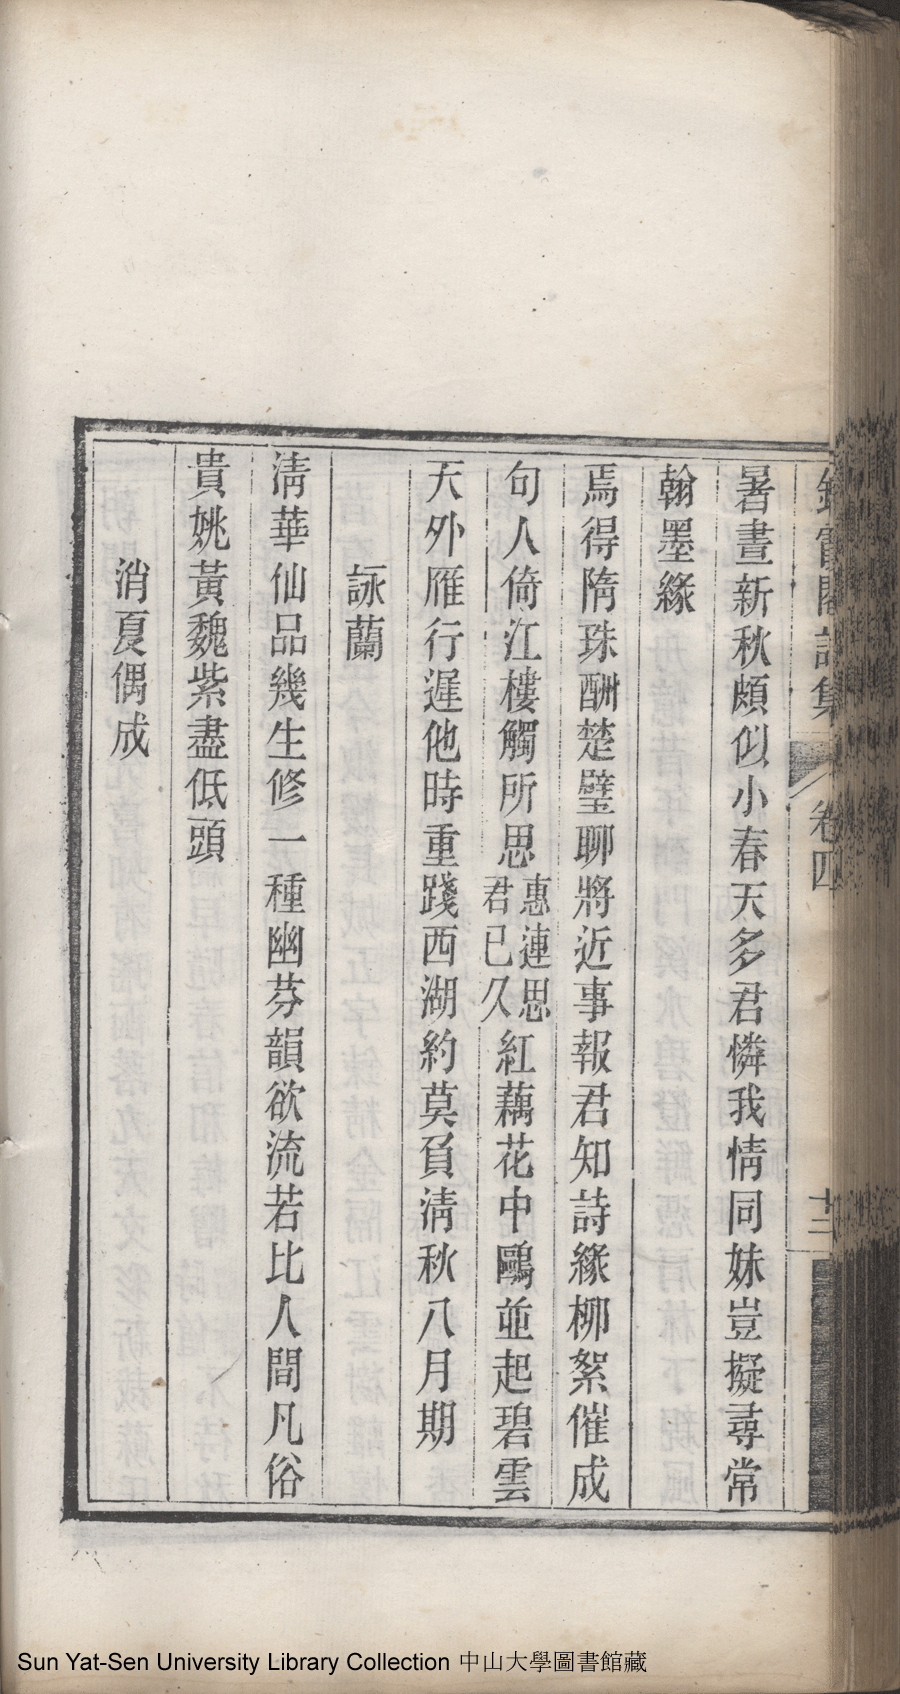 詩集 卷四 十三
暑晝新秋頗似小春天多君憐我情同妹豈擬尋常
翰墨緣
焉得隋珠酬楚璧聊將近事報君知詩緣柳絮催成
句人倚江樓觸所思惠連思君已久紅藕花中鷗並起碧雲
天外雁行遲他時重踐西湖約莫負清秋八月期
詠蘭
清華仙品幾生修一種幽芬韻欲流若比人間凡俗
貴姚黃魏紫盡低頭
消夏偶成
Sun Yat-Sen University Library Collection 中山大學圖書館藏